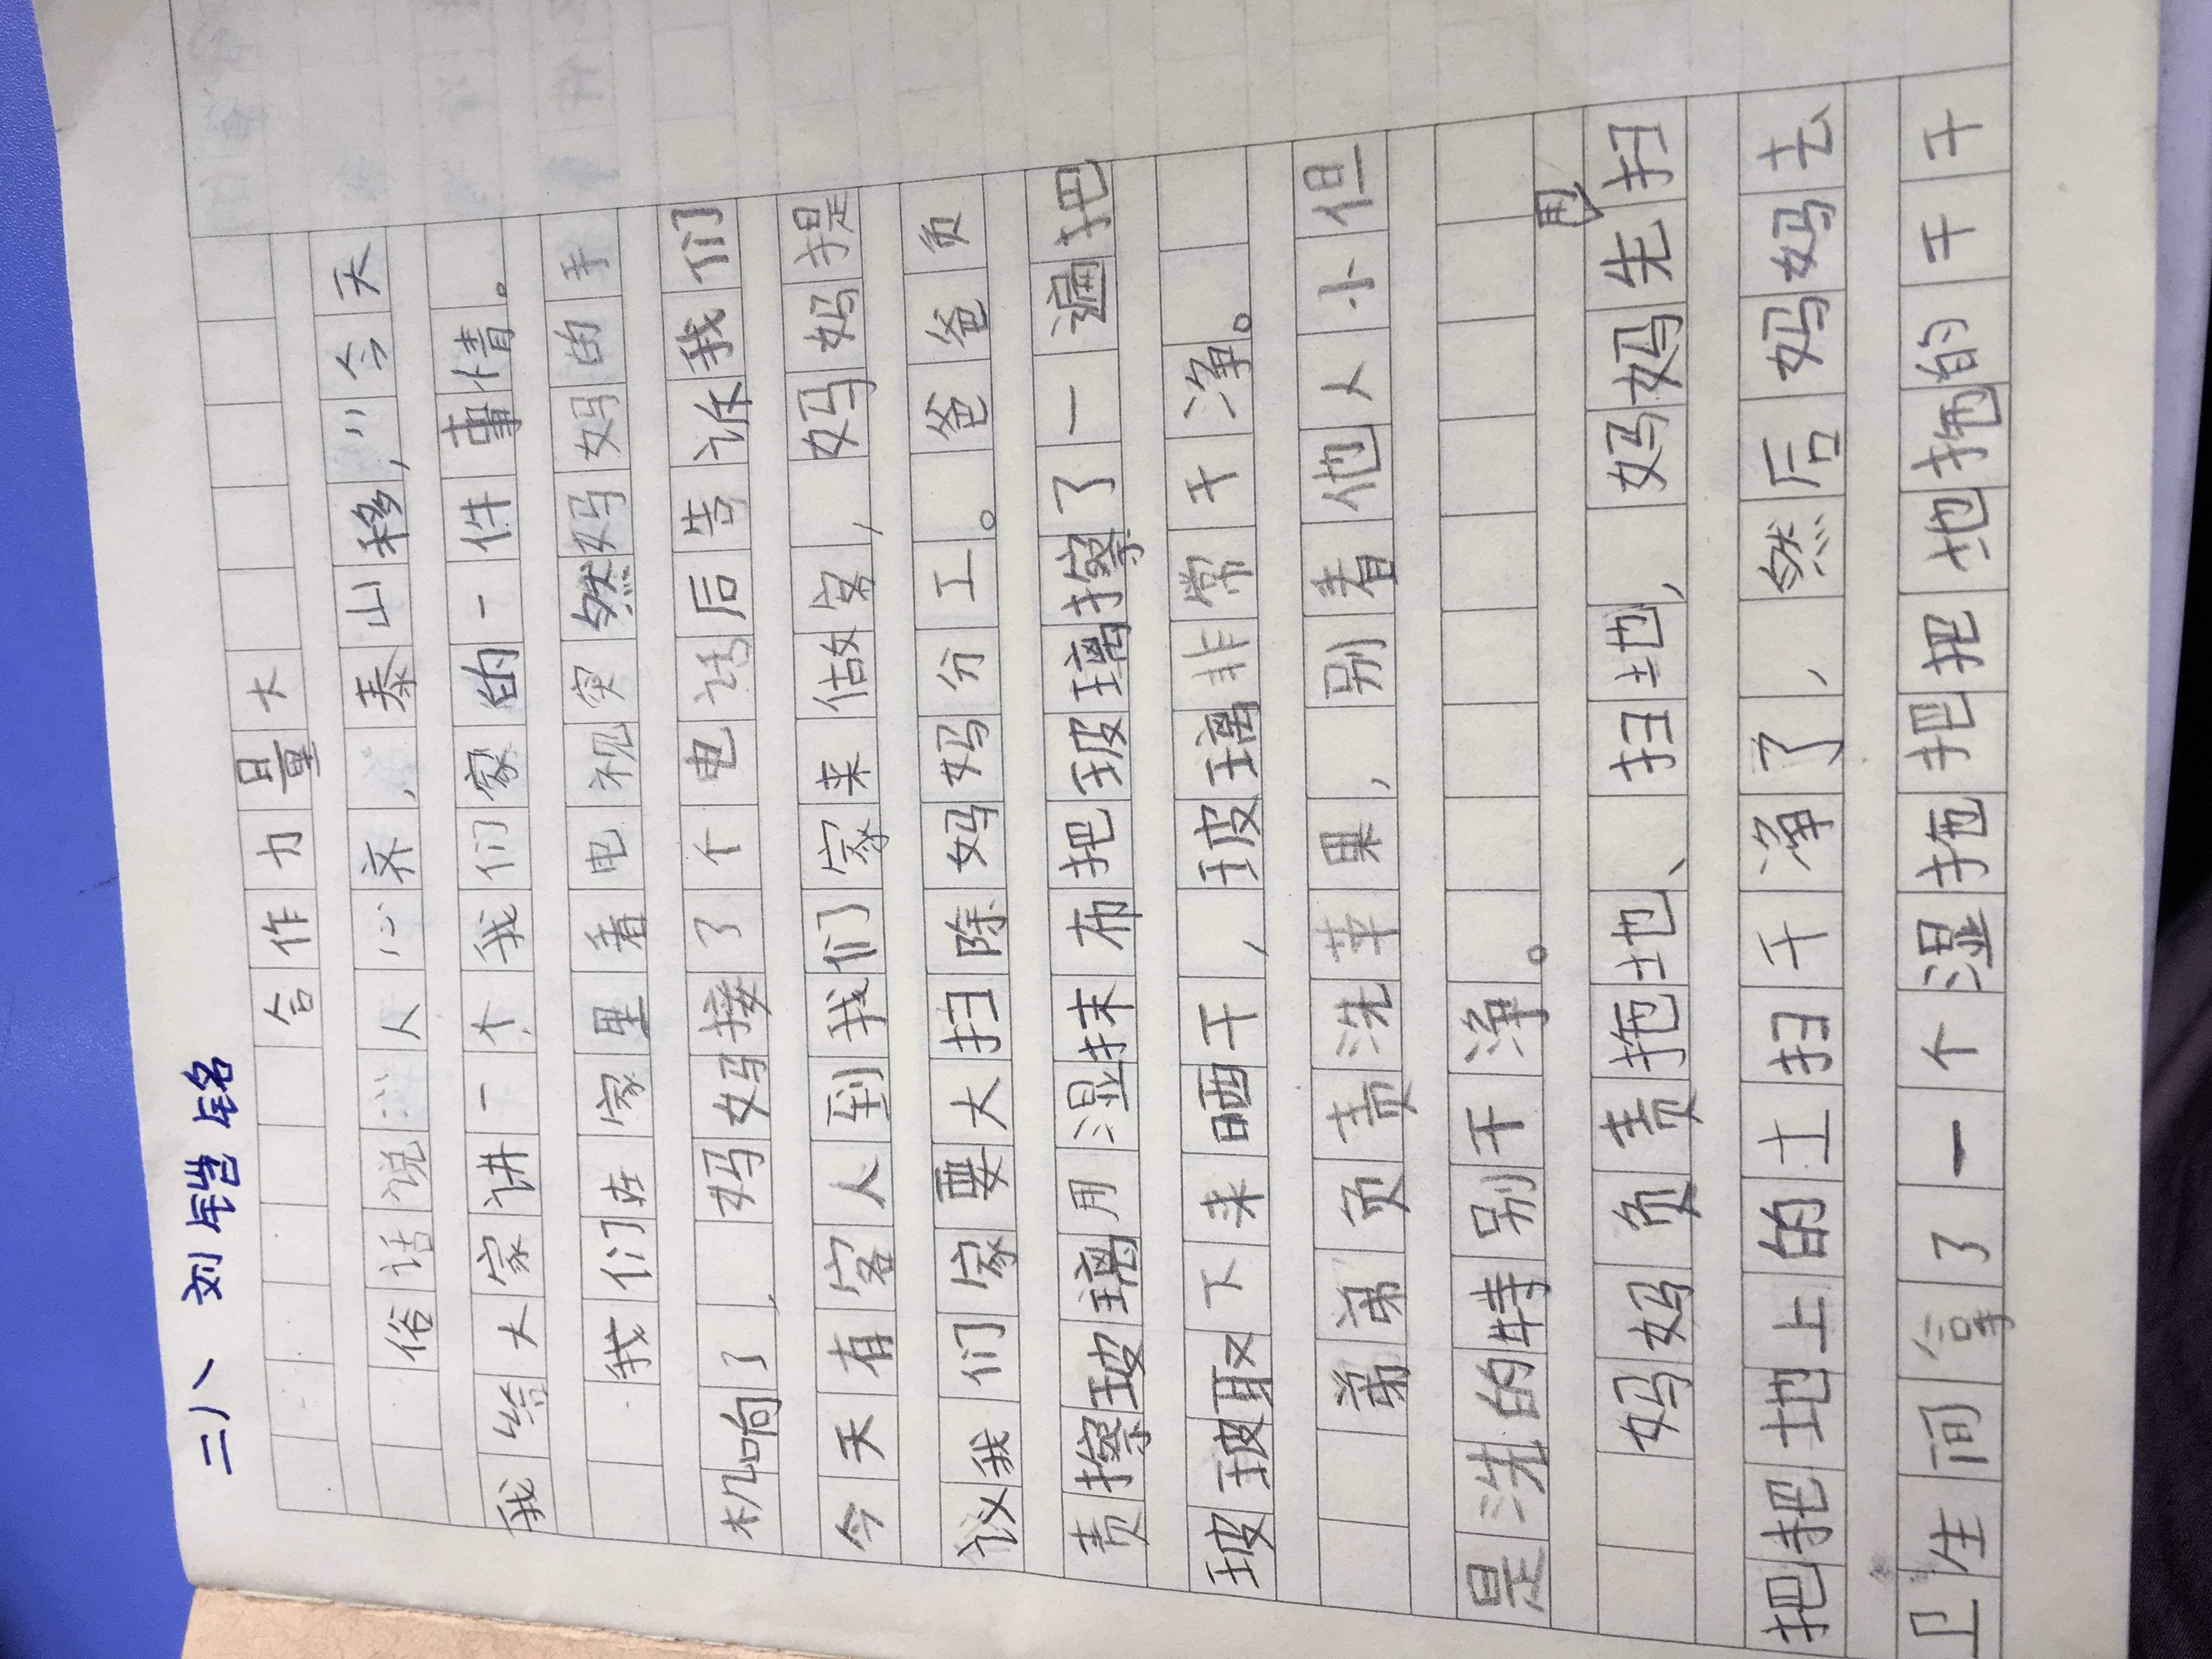 二八 刘铠铭
合作力量大
俗话说人心齐，泰山移，今天
我给大家讲一个我们家的一件事情。
我们在家里看电视突然妈妈的手
机响了，妈妈接了个电话后告诉我们
今天有客人到我们家来做客，妈妈提
议我们家要大扫除妈妈分工。爸爸负
责擦玻璃用湿抹布把玻璃擦了一遍把
玻玻取下来晒干，玻璃非常干净。
弟弟负责洗苹果，别看他人小但
是洗的特别干净。
妈妈负责拖地、扫地，妈妈先用扫
把把地上的土扫干净了，然后妈妈去
卫生间拿了一个湿拖把把地拖的干干